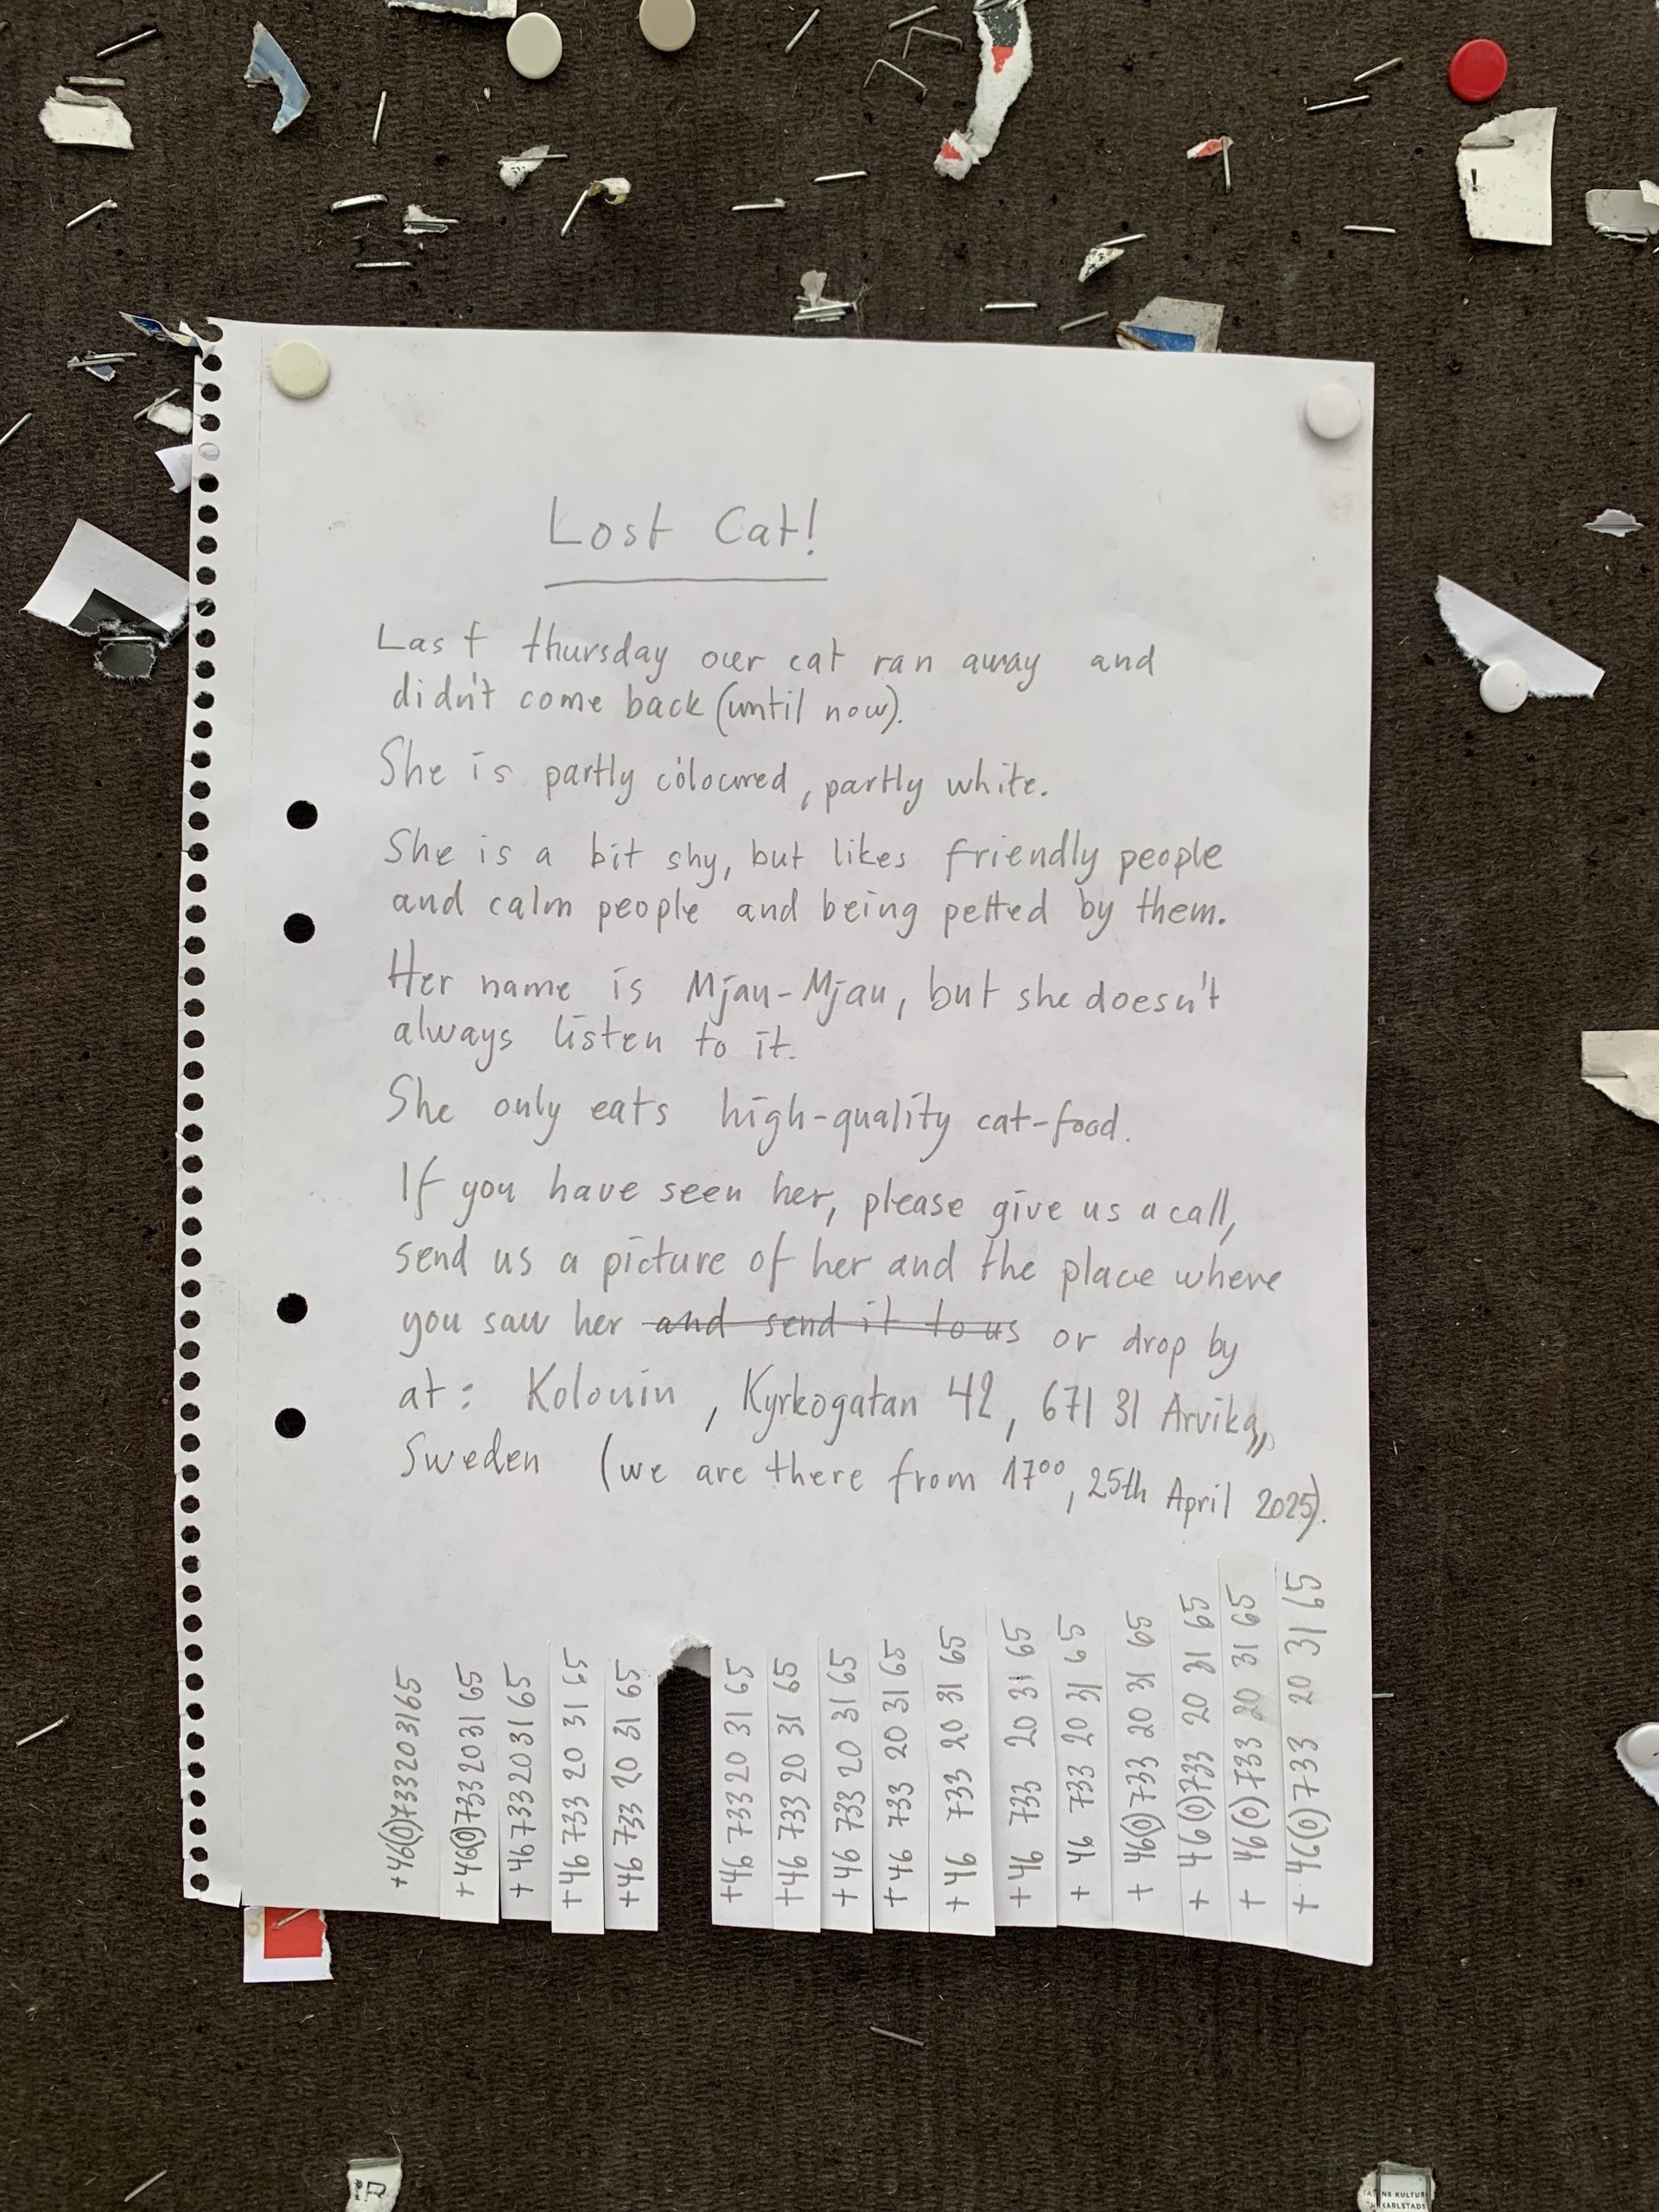 Lost Cat!
Last thursday our cat ran away and
didn't come back (until now).
She is partly coloured, partly white.
She is a bit shy, but likes friendly people
and calm people and being petted by them.
Her name is Mjau-Mjau, but she doesn't
always listen to it.
She only eats high-quality cat-food.
If you have seen her, please give us a call,
send us a picture of her and the place where
you saw her and send it to us or drop by
at: Kolonin, Kyrkogatan 42, 671 31 Arvika,
Sweden (we are there from 17⁰⁰, 25th April 2025).
+46(0)733203165
+46(0)733203165
+46733203165
+46 733 20 31 65
+46 733 20 31 65
+46 733 20 31 65
+46 733 20 31 65
+46 733 20 31 65
+46 733 20 31 65
+46 733 20 31 65
+46 733 20 31 65
+46 733 20 31 65
+46(0)733 20 31 65
+46(0)733 20 31 65
+46(0)733 20 31 65
+46(0)733 20 31 65
NS KULTUR
KARLSTADS